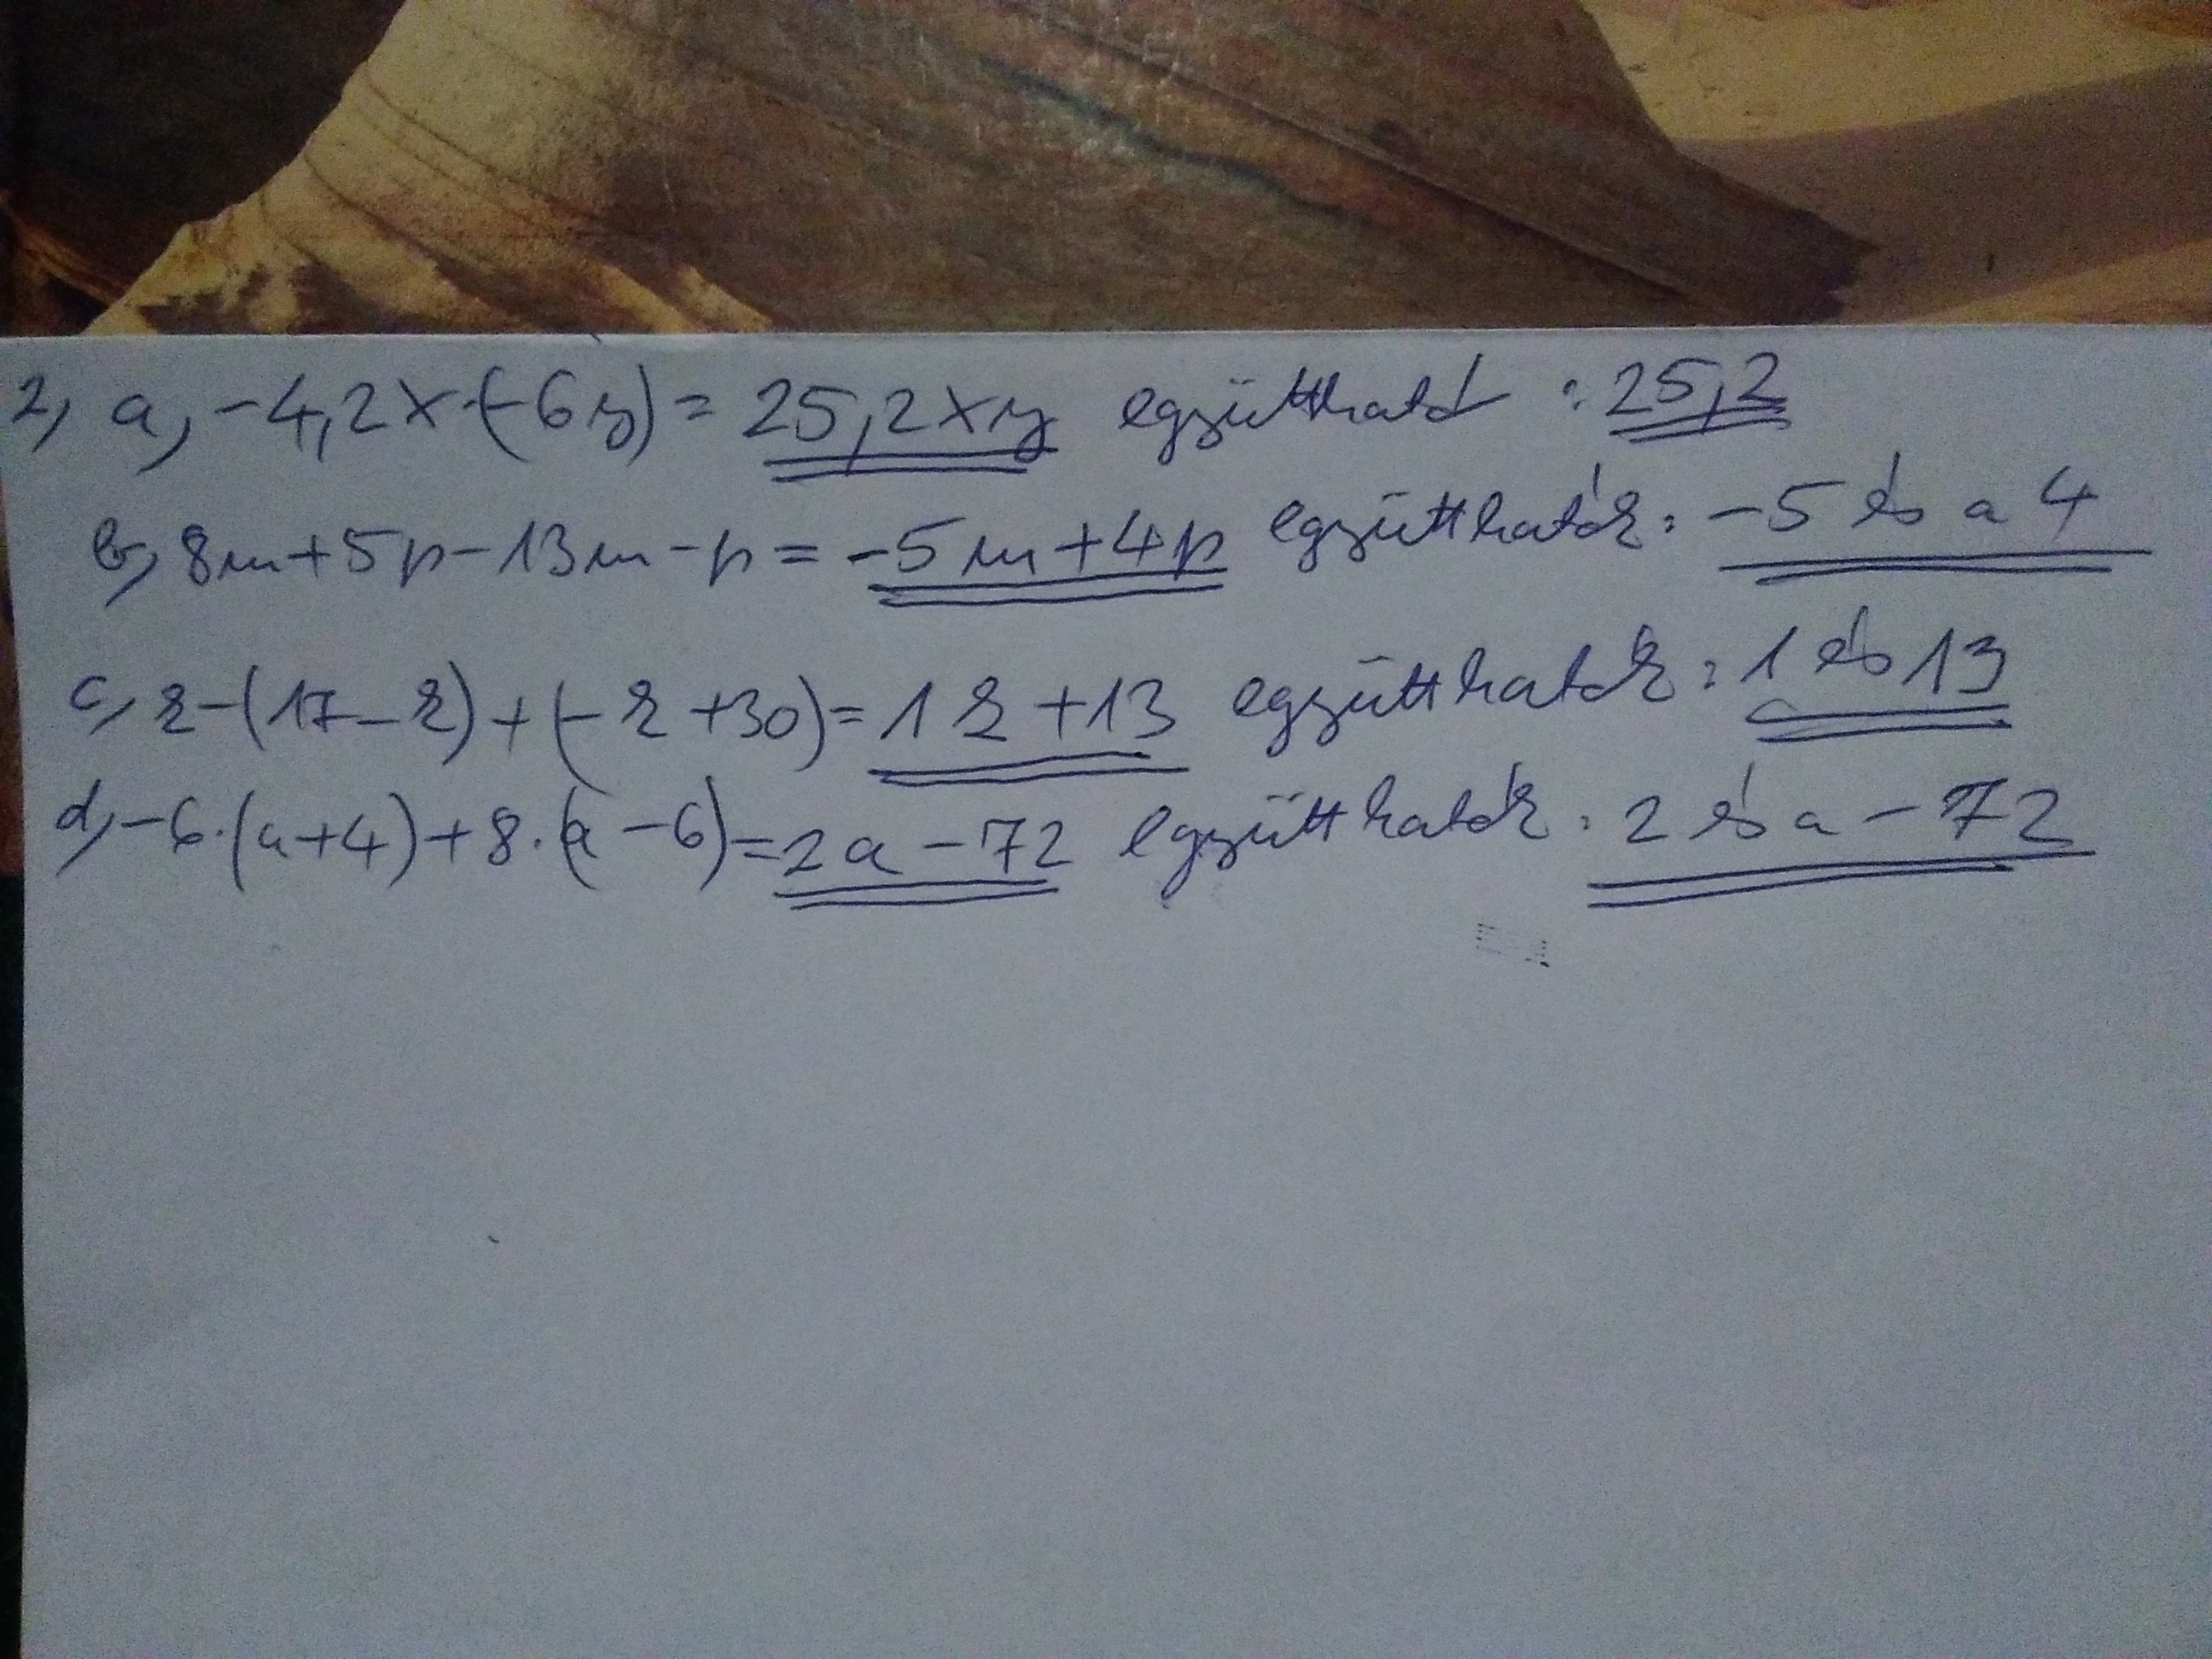 2, a, -4,2x·(-6y) = 25,2xy együttható : 25,2
b, 8m+5p-13m-p = -5m+4p együtthatók: -5 és a 4
c, k-(17-k)+(-k+30) = 1k+13 együtthatók: 1 és 13
d, -6·(a+4)+8·(a-6) = 2a-72 együtthatók: 2 és a -72